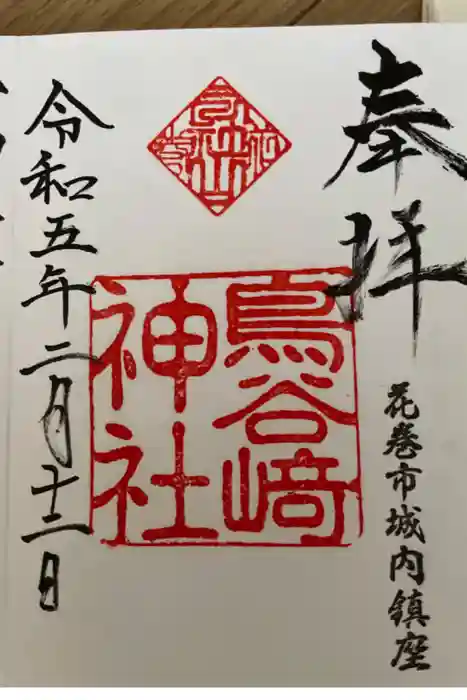 奉拝
花巻市城内鎮座
鳥谷﨑
神社
令和五年二月十二日